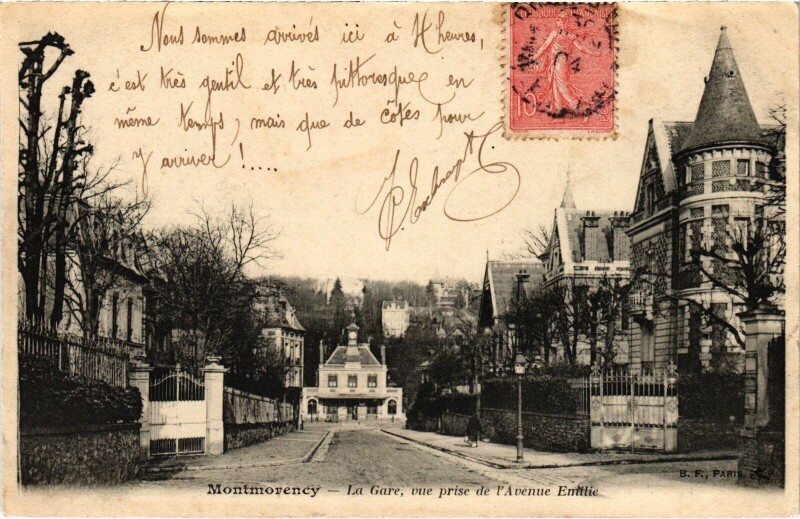 Nous sommes arrivés ici à 4 heures,
c'est très gentil et très pittoresque en
même temps, mais que de côtes pour
y arriver !....
10
Montmorency — La Gare, vue prise de l'Avenue Emilie
B. F., PARIS